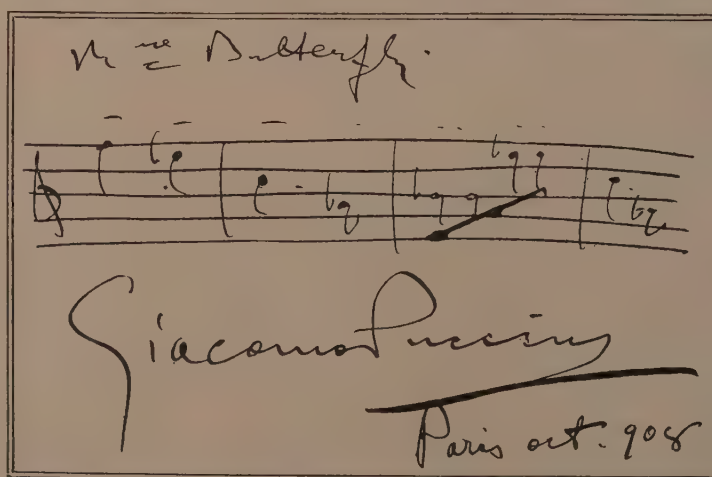 Mme Butterfly.
Giacomo Puccini
Paris oct. 908